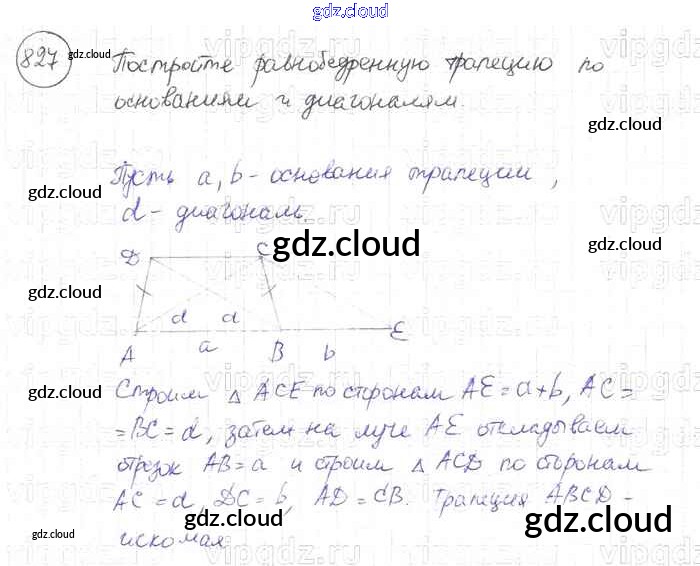 gdz.cloud
827 gdz.cloud Постройте равнобедренную трапецию по
основаниям и диагоналям.
gdz.cloud
Пусть a, b - основания трапеции,
gdz.cloud
d - диагональ.
gdz.cloud
D C gdz.cloud
gdz.cloud
d d E
A a B b
gdz.cloud
Строим △ ACE по сторонам AE = a+b, AC =
gdz.cloud
= BC = d, затем на луче AE откладываем
отрезок AB = a и строим △ ACD по сторонам
gdz.cloud
AC = d, DC = b, AD = CB. Трапеция ABCD -
gdz.cloud gdz.cloud gdz.cloud
искомая